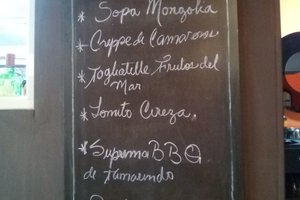 * Sopa Mongolia
* Creppe de Camarones
* Tagliatille Frutos del
Mar
* Lomito Cireza.
* Suprema BBQ
de Tamarindo